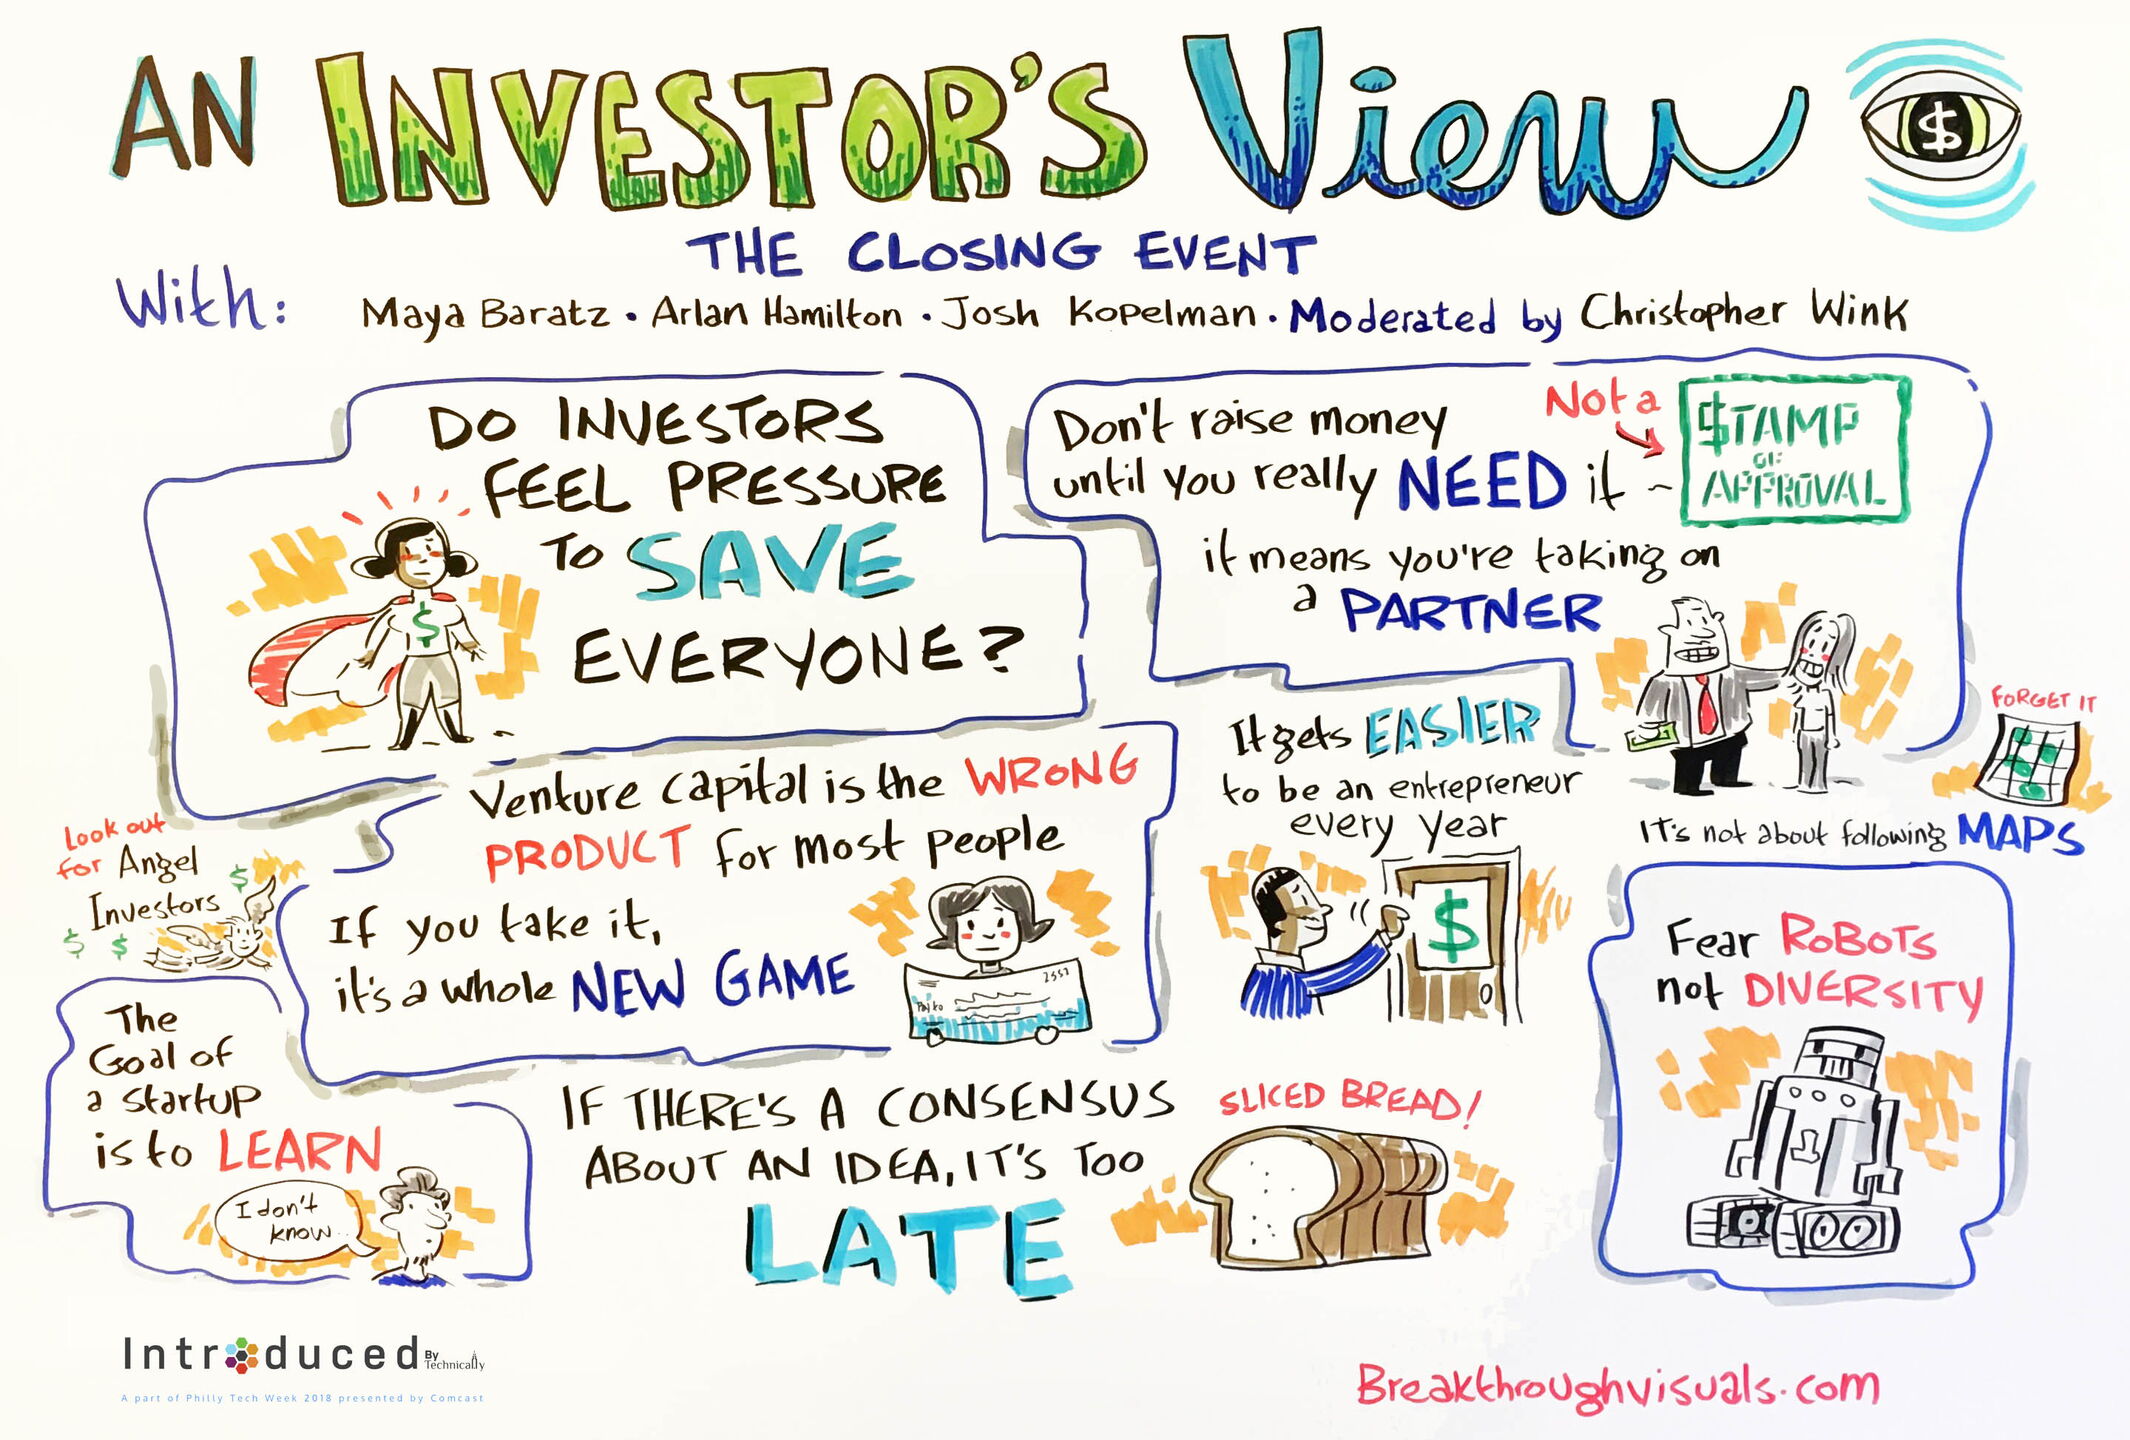 AN INVESTOR'S View
$
THE CLOSING EVENT
With: Maya Baratz • Arlan Hamilton • Josh Kopelman • Moderated by Christopher Wink
DO INVESTORS
FEEL PRESSURE
TO SAVE
EVERYONE?
$
Don't raise money
until you really NEED it ~
Not a
$TAMP
OF
APPROVAL
it means you're taking on
a PARTNER
Venture capital is the WRONG
PRODUCT for most people
If you take it,
it's a whole NEW GAME
Pay to
2557
It gets EASIER
to be an entrepreneur
every year
$
FORGET IT
IT's not about following MAPS
Look out
for Angel
Investors
$
$ $
The
Goal of
a startup
is to LEARN
I don't
know...
IF THERE'S A CONSENSUS
ABOUT AN IDEA, IT'S TOO
LATE
SLICED BREAD!
Fear ROBOTS
not DIVERSITY
Introduced By Technical.ly
A part of Philly Tech Week 2018 presented by Comcast
Breakthroughvisuals.com